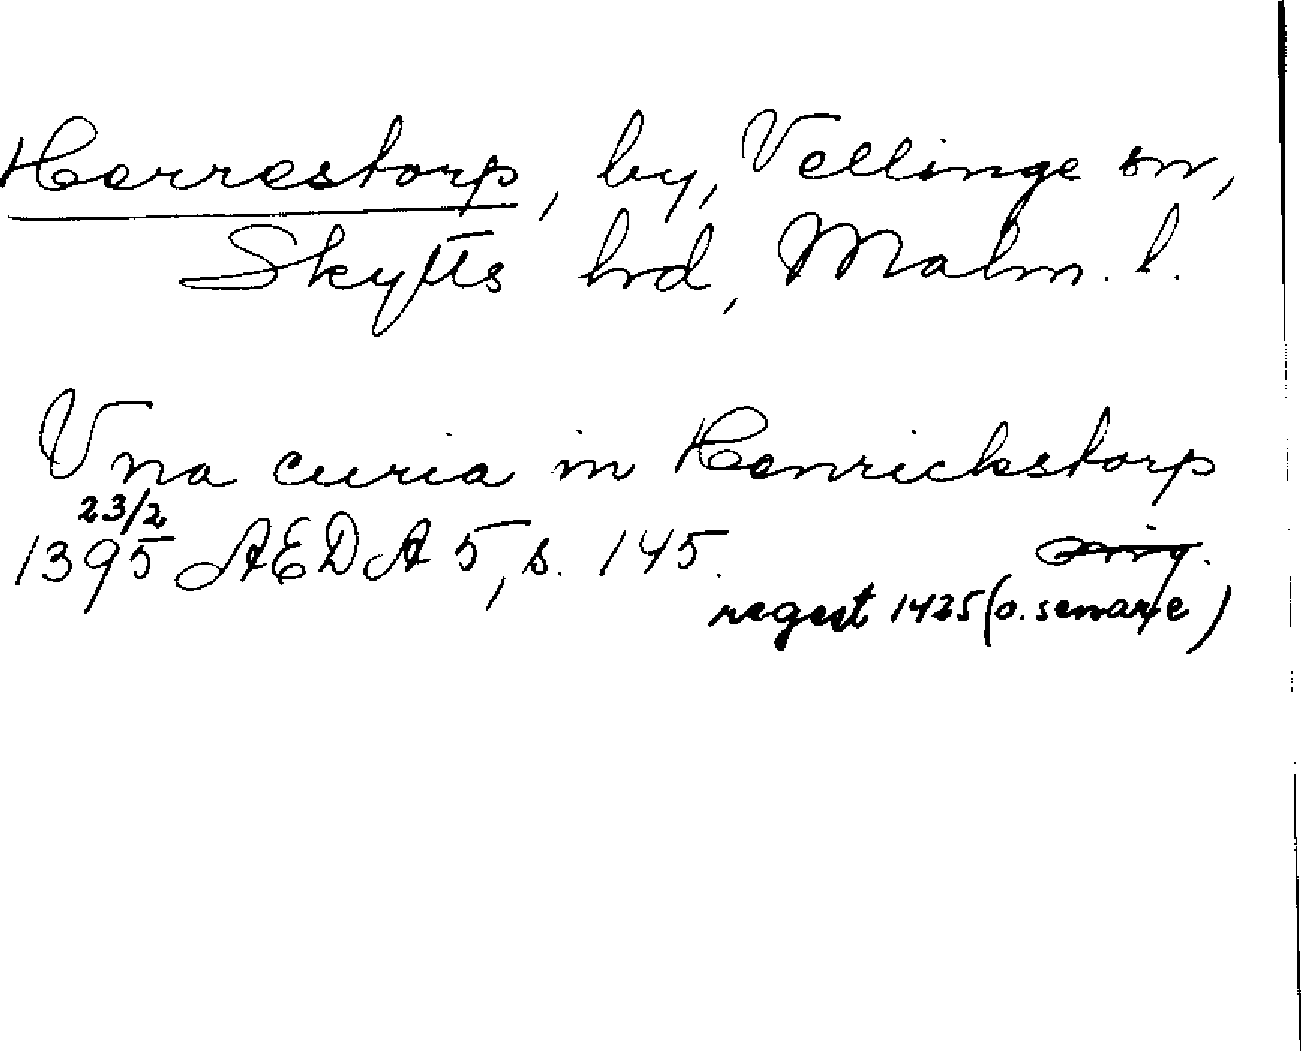 Herrestorp, by, Vellinge sn,
Skytts hd, Malm. l.
Vna curia in Henrickstorp
23/2
1395 AEDA 5, s. 145. orig.
regest 1425 (o. senare)